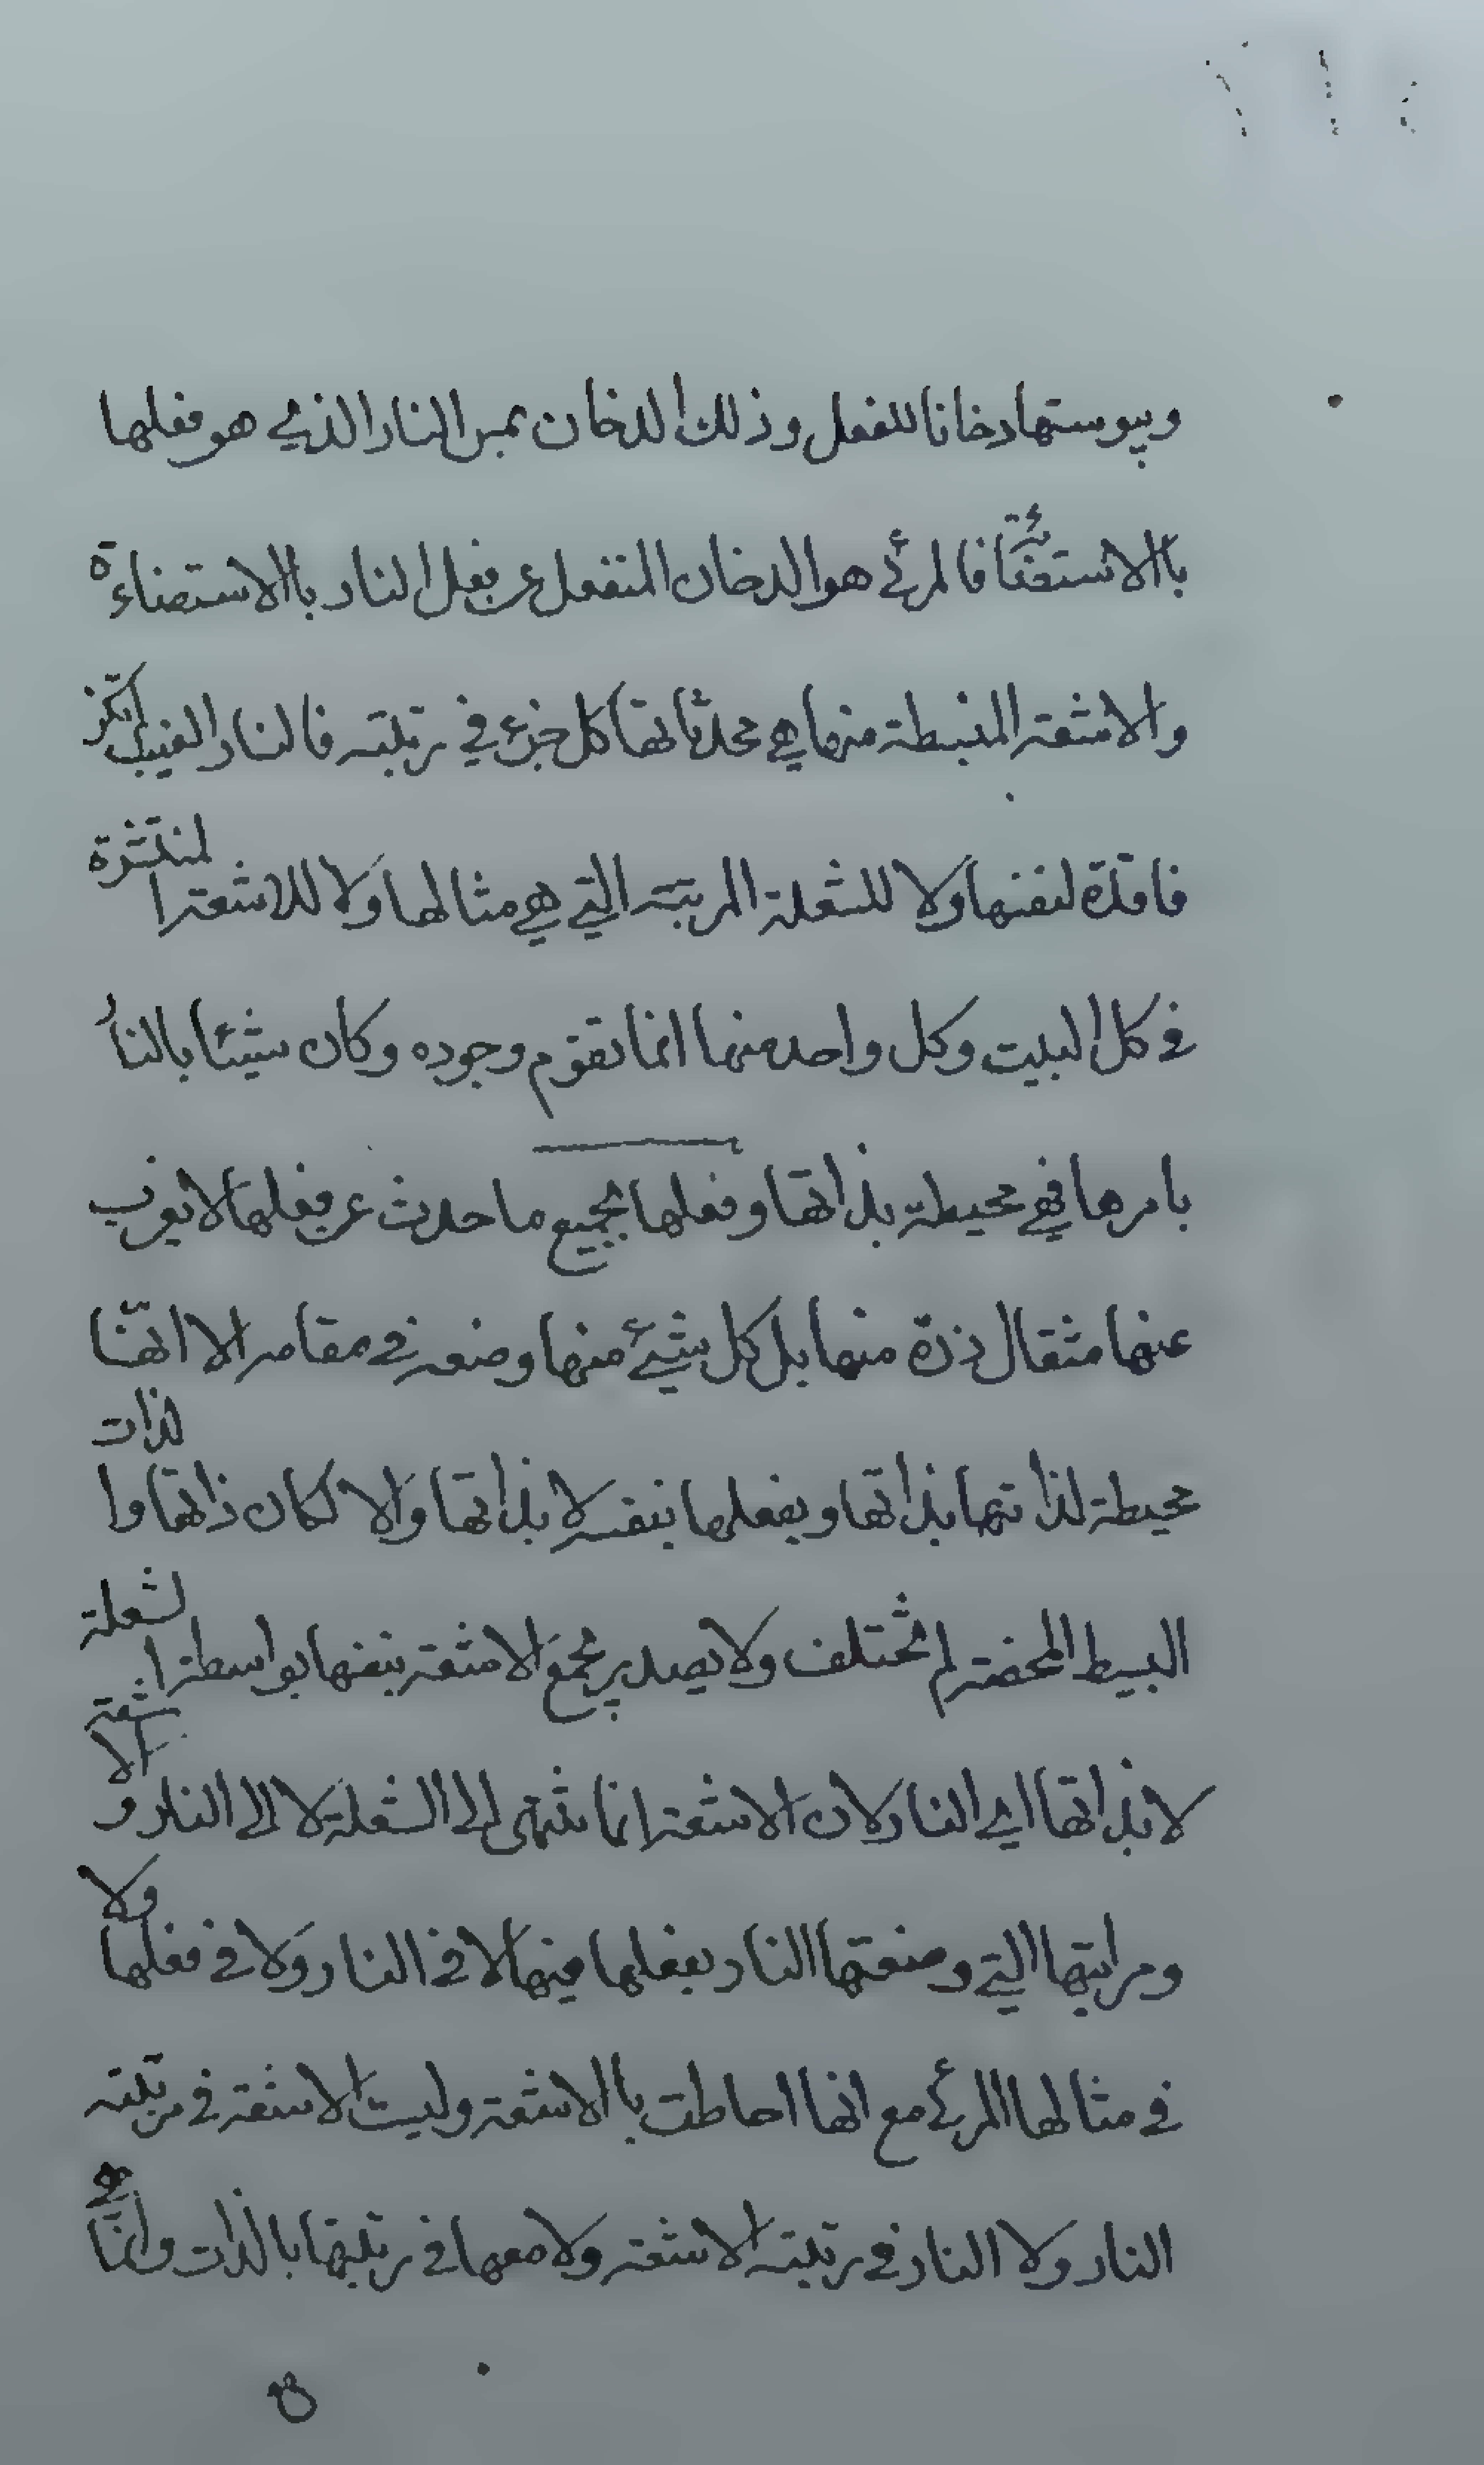 ويبوستها دخانا للفعل وذلك الدخان بمس النار الذي هو فعلها
باالاستضائة فالمرئي هو الدخان المنفعل عن فعل النار باالاستضاءة
والاشعة المنبسطة منها هي محدثاتها كل جزء في رتبته فالنار الغيب لم تكن
فاقدة لنفسها ولا للشعلة المرتبة التي هي مثالها ولا للاشعة المنتشرة
في كل البيت وكل واحد منها انما تقوم وجوده وكان شيئا بالنار
بامرها فهي محيطة بذاتها وفعلها بجميع ما حدث عن فعلها لا يعزب
عنها مثقال ذرة منها بل كل شيء منها وضعه في مقامه الا انها
محيطة لذاتها بذاتها وبفعلها بنفسه لا بذاتها والا لكان ذاتها والذات
البسيط المحضة لم تختلف ولا يصدر جميع الاشعة بنفسها بواسطة الشعلة
لا بذاتها اي النار لان الاشعة انما تنتهي الى الشعلة لا الى النار والاشعة
ومراتبها التي وضعتها النار بفعلها فيها لا في النار ولا في فعلها ولا
في مثالها المرئي مع انها احاطت باالاشعة وليست الاشعة في رتبة
النار ولا النار في رتبة الاشعة ولا معها في رتبتها بالذات وانما هي